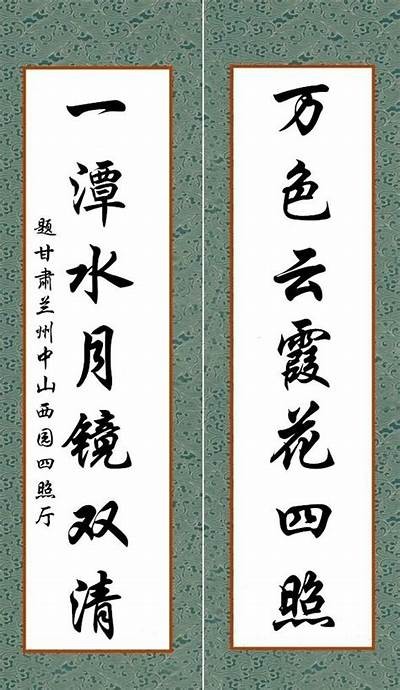 万色云霞花四照
一潭水月镜双清
题甘肃兰州中山西园四照厅